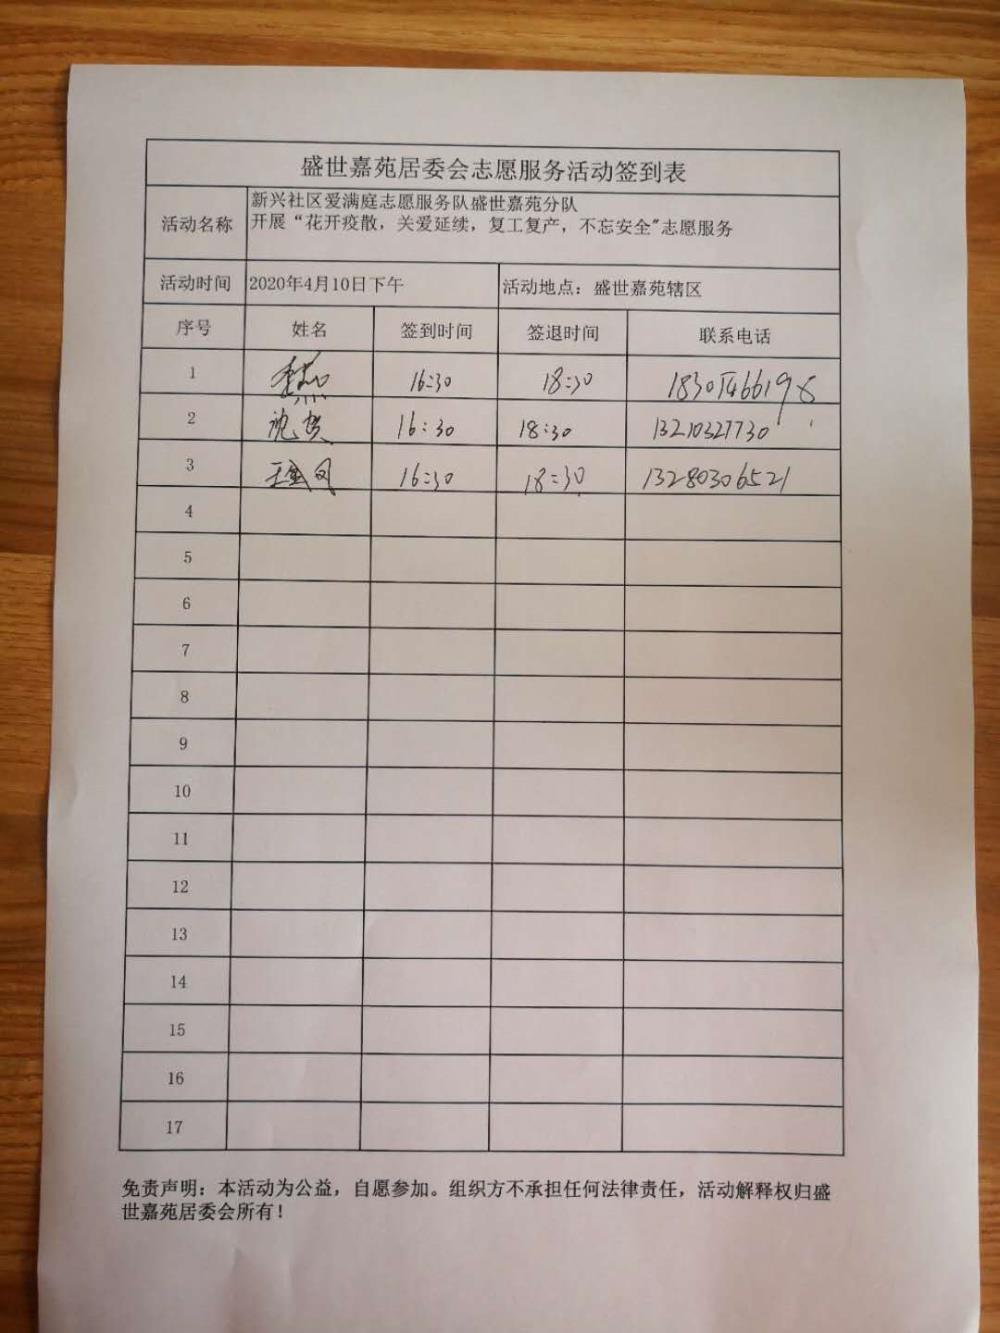 盛世嘉苑居委会志愿服务活动签到表
活动名称 新兴社区爱满庭志愿服务队盛世嘉苑分队
开展“花开疫散，关爱延续，复工复产，不忘安全"志愿服务
活动时间 2020年4月10日下午 活动地点：盛世嘉苑辖区
序号 姓名 签到时间 签退时间 联系电话
1 16:30 18:30
2 沈贺 16:30 18:30 13210327730
3 16:30 18:30 13280306521
4
5
6
7
8
9
10
11
12
13
14
15
16
17
免责声明：本活动为公益，自愿参加。组织方不承担任何法律责任，活动解释权归盛
世嘉苑居委会所有！